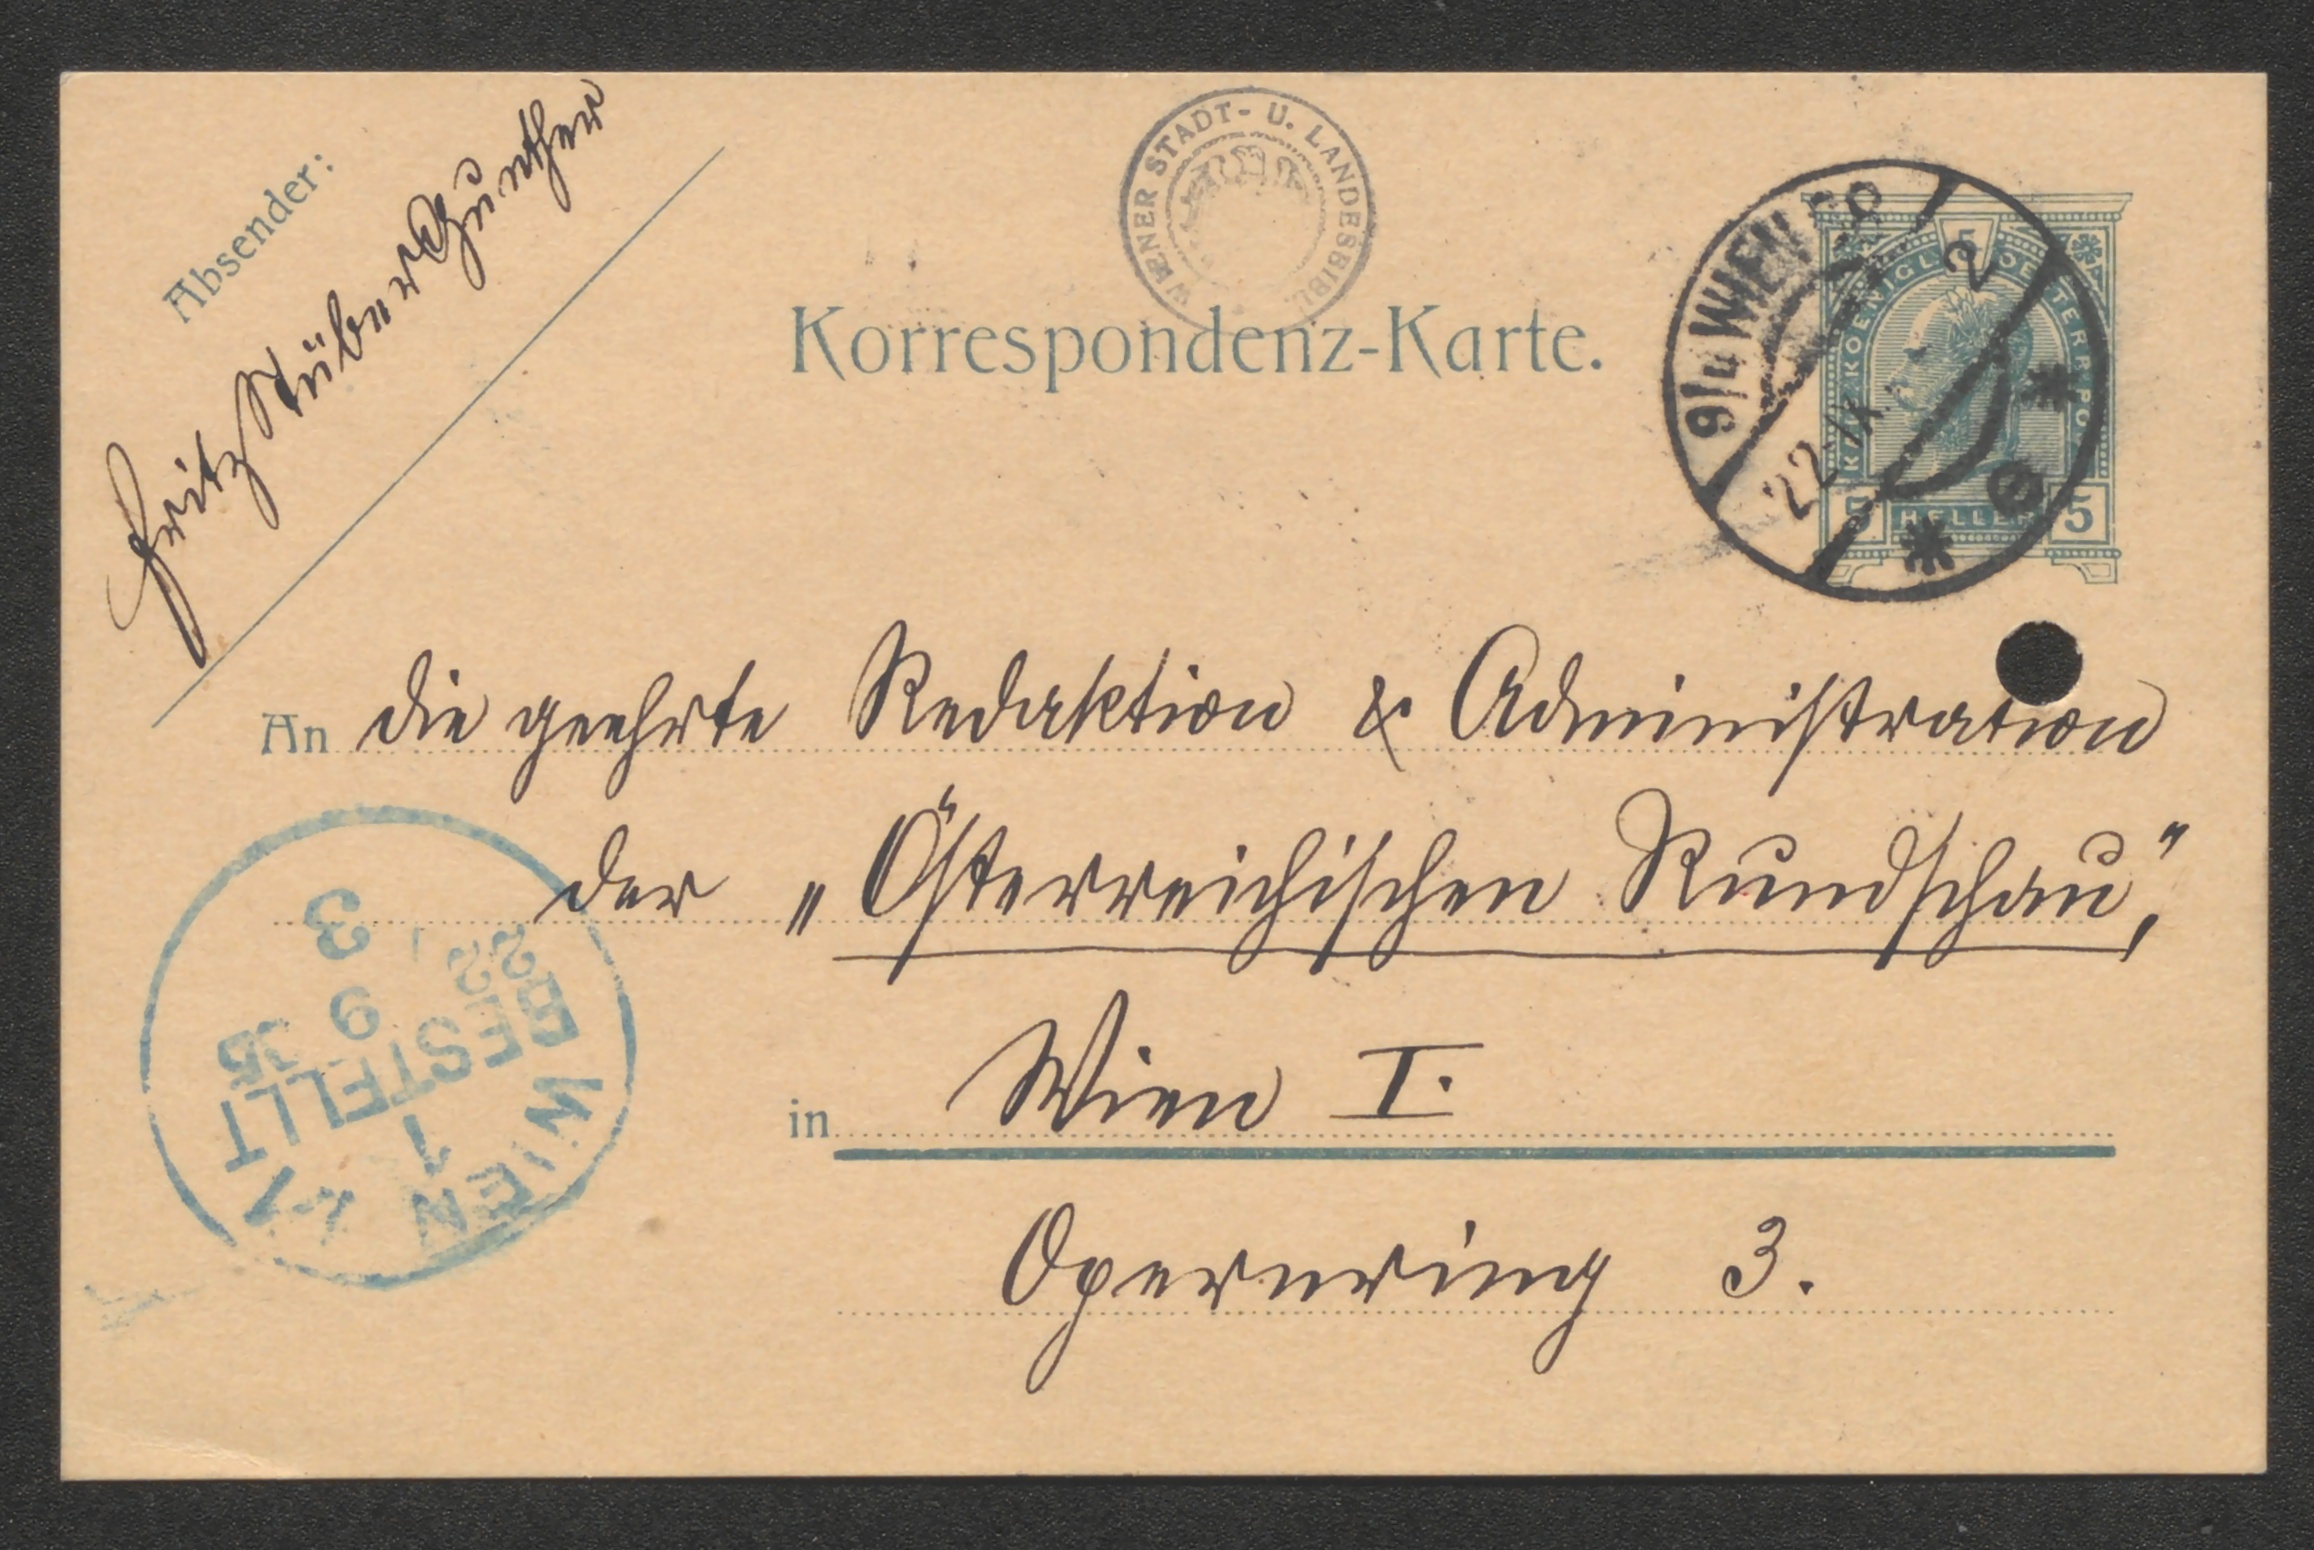 Absender:
Fritz Stüber-Gunther
WIENER STADT- U. LANDESBIBL.
Korrespondenz-Karte.
9/4 WIEN
22·IX
HELLER 5
An die geehrte Redaktion & Administration
der „Österreichischen Rundschau",
in Wien I.
Opernring 3.
WIEN 1
BESTELLT
22 9
3